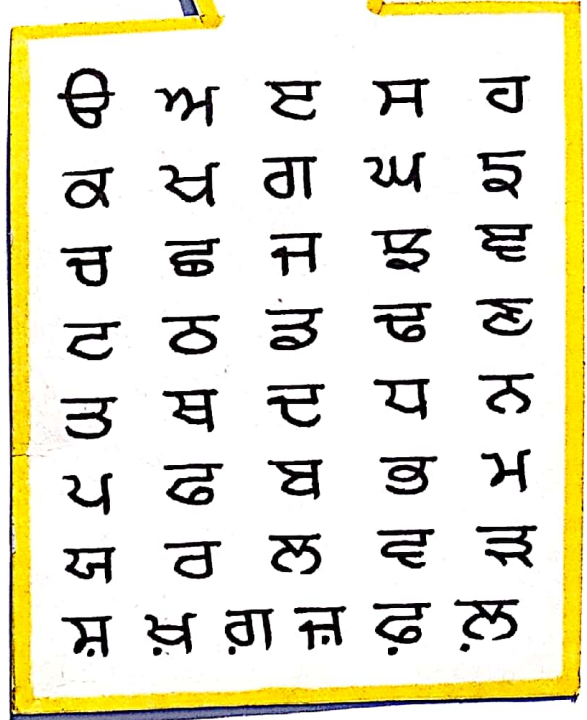 ੳ ਅ ੲ ਸ ਹ
ਕ ਖ ਗ ਘ ਙ
ਚ ਛ ਜ ਝ ਞ
ਟ ਠ ਡ ਢ ਣ
ਤ ਥ ਦ ਧ ਨ
ਪ ਫ ਬ ਭ ਮ
ਯ ਰ ਲ ਵ ੜ
ਸ਼ ਖ਼ ਗ਼ ਜ਼ ਫ਼ ਲ਼